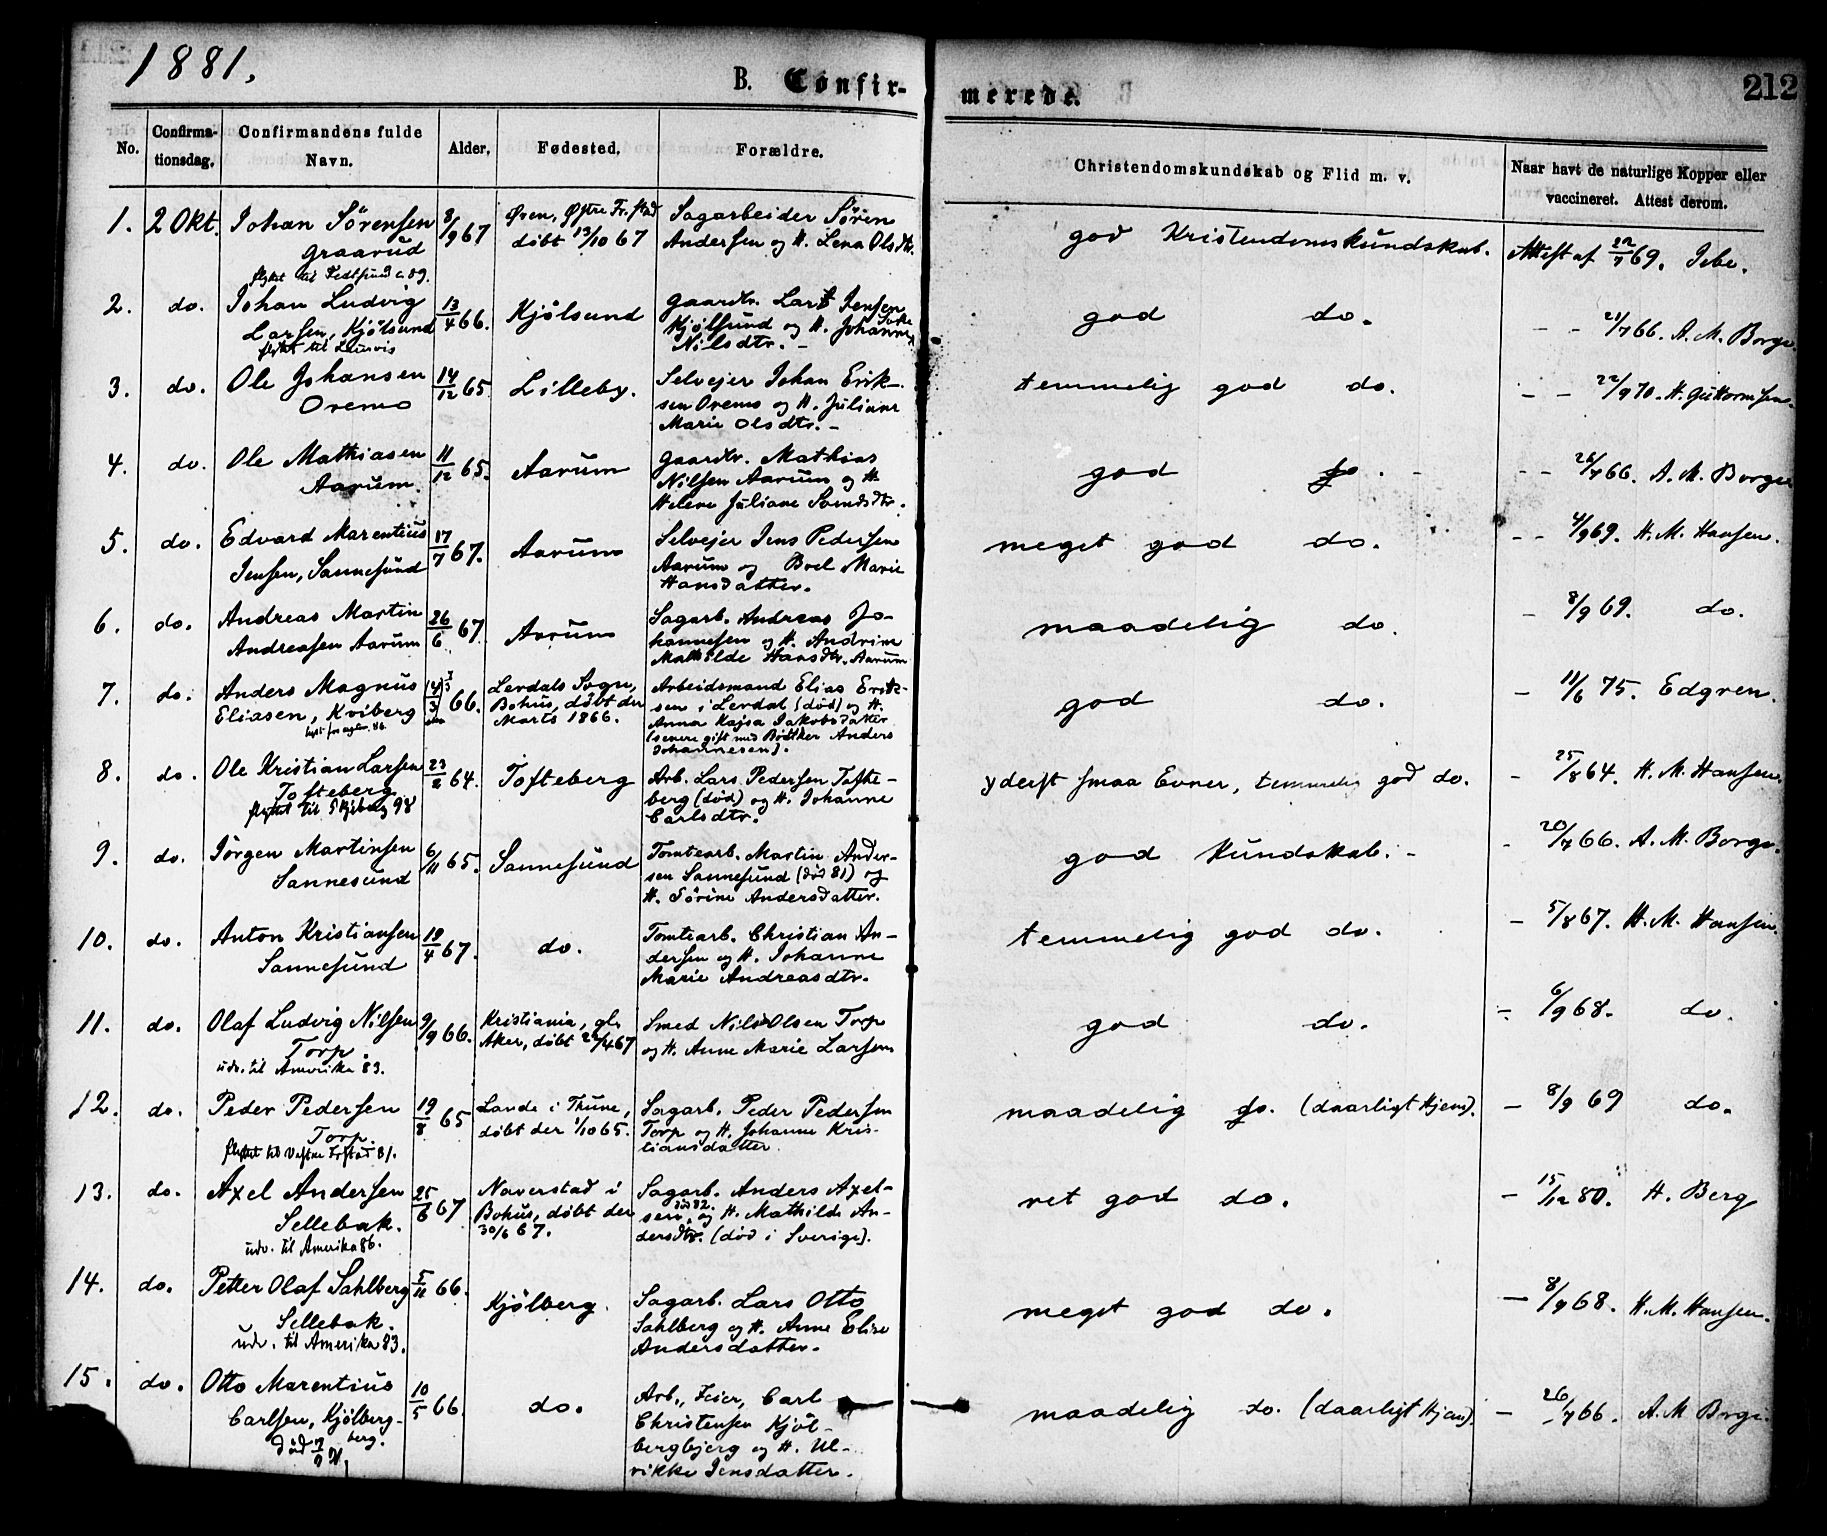 1881.
B. Confir-
merede.
212
No.
Confirma-
tionsdag.
Confirmandens fulde
Navn.
Alder.
Fødested.
Forældre.
Christendomskundskab og Flid m. v.
Naar havt de naturlige Kopper eller
vaccineret. Attest derom.
1. 2 Okt. Johan Sörensen 8/9 67 Øren, Østre Fr.stad Sagarbeider Sören god Kristendomskundskab. Attest af 22/7 69. Jebe.
Graarud döbt 13/10 67 Andersen og H. Lena Olsdtr.
flyttet til
2. do. Johan Ludvig 13/4 66. Kjölsund Gaardbr. Lars Jensen god do. - - 21/7 66. A. M. Borge.
Larsen, Kjölsund Kjölsund og H. Johanne
flyttet til Nilsdtr. -
3. do. Ole Johansen 14/12 65. Lilleby. Selvejer Johan Erik- temmelig god do. - - 22/9 70. H. Guttormsen.
Oremo sen Oremo og H. Juliane
Marie Olsdtr. -
4. do. Ole Mathiasen 11/12 65. Aarum Gaardbr. Mathias god do. - - - 26/7 66. A. M. Borge
Aarum. Nilsen Aarum og H.
Helene Juliane Svendsdtr.
5. do. Edvard Marentius 17/7 67. Aarum Selvejer Jens Pedersen meget god do. - - 4/9 69. H. M. Hansen.
Jensen, Sannesund Aarum og Boel Marie
Hansdatter.
6. do. Andreas Martin 26/6 67. Aarum Sagarb. Andreas Jo- maadelig do. - 8/9 69. do.
Andreasen Aarum hannesen og H. Andrine
Mathilde Hansdtr. Aarum
7. do. Anders Magnus 66. Lerdals Sogn, Arbeidsmand Elias Erik- god do. - 11/6 75. Edgren.
Eliasen, Kviberg Bohus, döbt der sen i Lerdal (död) og H.
Marts 1866. Anna Kajsa Jakobsdatter
(senere gift med Bödker Anders
Johannesen).
8. do. Ole Kristian Larsen 23/2 64. Tofteberg Arb. Lars Pedersen Tofte- yderst smaa Evner, temmelig god do. - 25/8 64. H. M. Hansen.
Tofteberg berg (död) og H. Johanne
flyttet til Skjeberg 98 Carlsdtr.
9. do. Jörgen Martinsen 6/11 65. Sannesund Tomtearb. Martin Ander- god Kundskab. - - 20/7 66. A. M. Borge.
Sannesund sen Sannesund (död 81) og
H. Sörine Andersdatter.
10. do. Anton Kristiansen 19/4 67. do. Tomtearb. Christian An- temmelig god do. - 5/8 67. H. M. Hansen.
Sannesund dersen og H. Johanne
Marie Andreasdtr.
11. do. Olaf Ludvig Nilsen 9/9 66. Kristiania, gl. Smed Nils Olsen Torp god do. - 6/9 68. do.
Torp. Aker, döbt 22/4 67 og H. Anne Marie Larsen
udv. til Amerika 83.
12. do. Peder Pedersen 19/8 65 Lande i Thune, Sagarb. Peder Pedersen maadelig do. (daarligt Hjem). - 8/9 69 do.
Torp. döbt der 1/10 65. Torp og H. Johanne Kris-
flyttet til Vestre Frstad 81. tiansdatter.
13. do. Axel Andersen 25/6 67 Naverstad i Sagarb. Anders Axel- ret god do. - 15/12 80. H. Berg
Sellebak. Bohus, döbt der sen, död 82. og H. Mathilde An-
udv. til Amerika 86. 30/6 67. dersdtr. (död i Sverige).
14. do. Petter Olaf Sahlberg 5/11 66. Kjölberg. Sagarb. Lars Otto meget god do. - 8/9 68. H. M. Hansen.
Sellebak. Sahlberg og H. Anne Elise
udv. til Amerika 83. Andersdatter.
15. do. Otto Marentius 10/5 66. do. Arb., Feier, Carl maadelig do. (daarligt Hjem). - 26/7 66. A. M. Borge.
Carlsen, Kjölberg- Christensen Kjöl-
berg. bergbjerg og H. Ul-
död rikke Jensdatter.